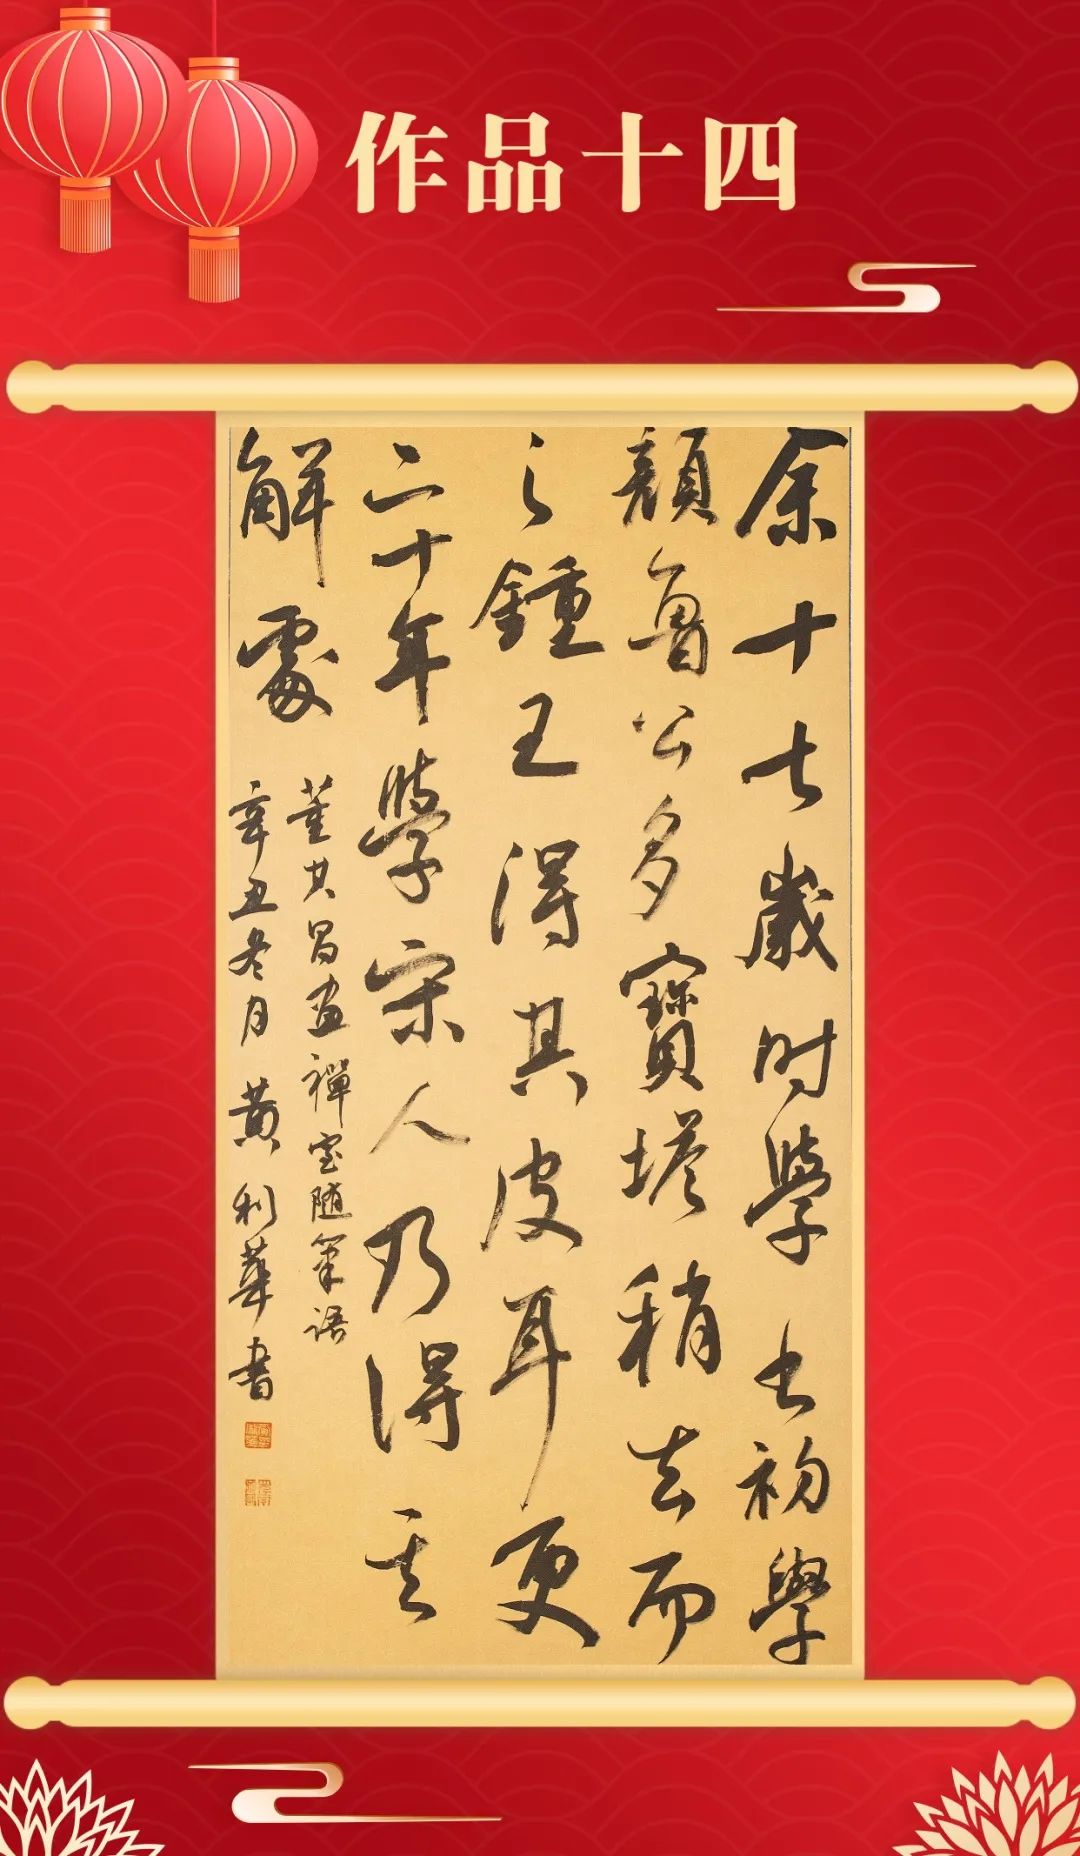 作品十四
余十七歲时學书初學
顔魯公多寶塔稍去而
之鍾王得其皮耳更
二十年學宋人乃得其
解處
董其昌畫禪室随筆语
辛丑冬月黄利華書